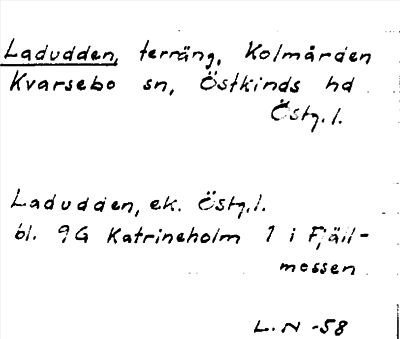 Ladudden, terräng, Kolmården
Kvarsebo sn, Östkinds hd
Östg. l.
Ladudden, ek. Östg. l.
bl. 9G Katrineholm 1 i Fjäll-
mossen
L. N -58